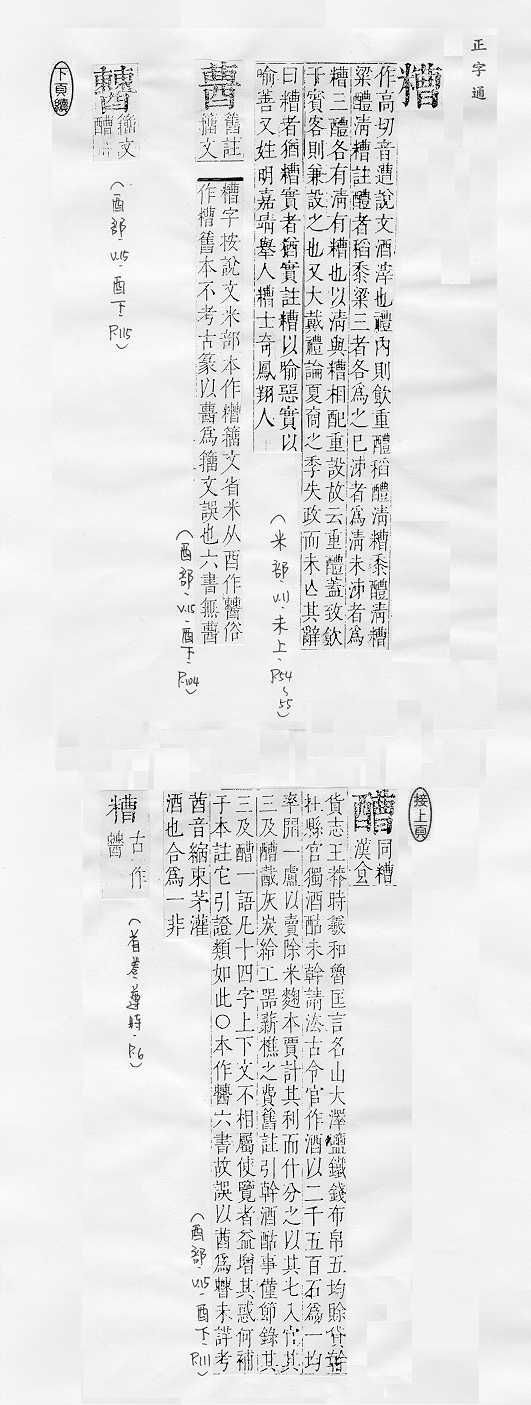 正字通
糟
作高切音遭說文酒滓也禮內則飲重醴稻醴清糟黍醴清糟
粱醴清糟註醴者稻黍粱三者各為之已泲者為清未泲者為
糟三醴各有清有糟也以清與糟相配重設故云重醴蓋致飲
于賓客則兼設之也又大戴禮論夏商之季失政而未亾其辭
曰糟者猶糟實者猶實註糟以喻惡實以
喻善又姓明嘉靖舉人糟士奇鳳翔人
(米部.v.11.未上.P54~55)
舊註
籀文
糟字按說文米部本作糟籀文省米从酉作𨢥俗
作糟舊本不考古篆以蔷為籀文誤也六書無
(酉部.v.15.酉下.P.104)
籀文
醩
(酉部.v.15.酉下.P.115)
下頁續
接上頁
醩
同糟
漢食
貨志王莽時羲和魯匡言名山大澤鹽鐵錢布帛五均賒貸斡
在縣官獨酒酤未幹請法古令官作酒以二千五百石為一均
率開一盧以賣除米麴本賈計其利而什分之以其七入官其
三及醩酨灰炭給工器薪樵之費舊註引幹酒酤事僅節錄其
三及醩一語凡十四字上下文不相屬使覽者益增其惑何補
于本註它引證類如此○本作𨢥六書故誤以莤為𣍘未詳考
莤音縮束茅灌
酒也合為一非
(酉部.v.15.酉下.P.111)
糟
古作
(首卷.遵時.P.6)